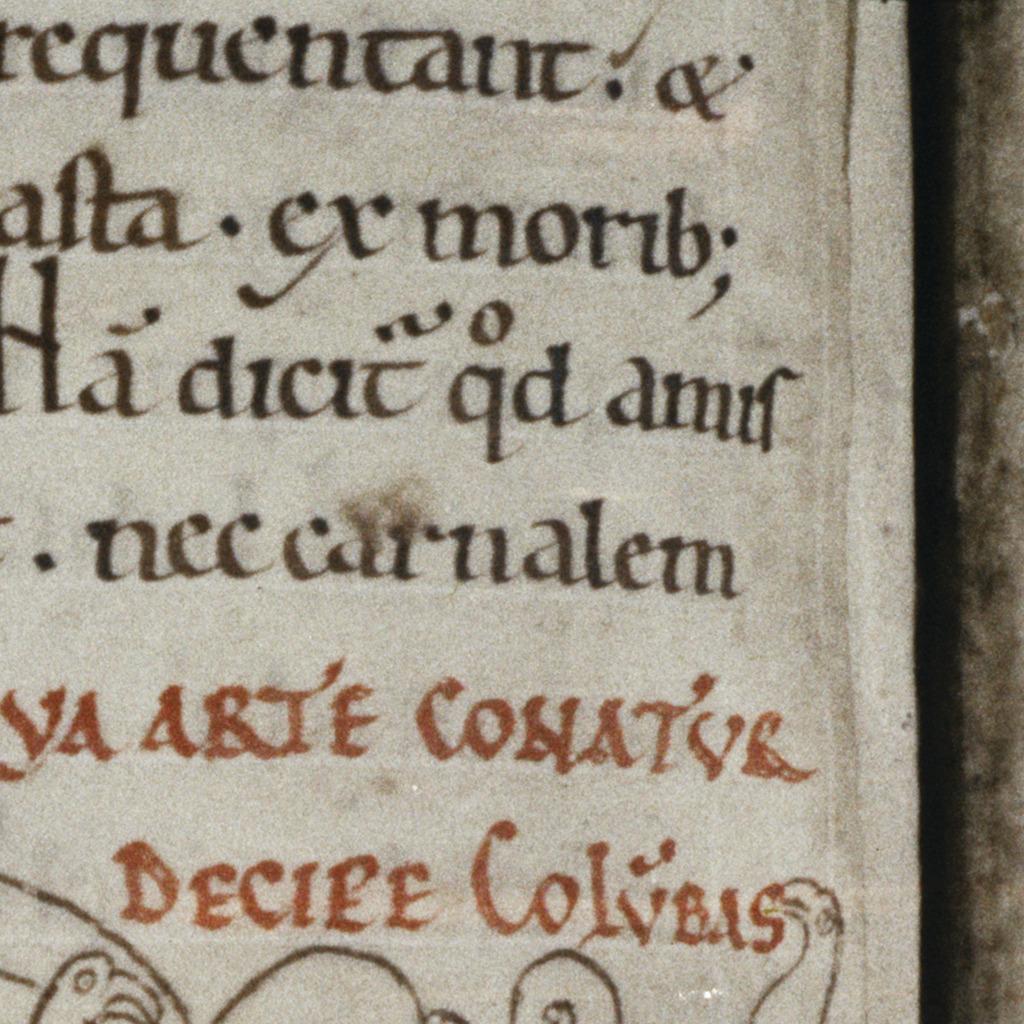 requentant. &
asta. ex morib;
Hā dicit̄ qͦd amis
. nec carnalem
VA ARTE CONATVR
DECIPE COLV̄BAS